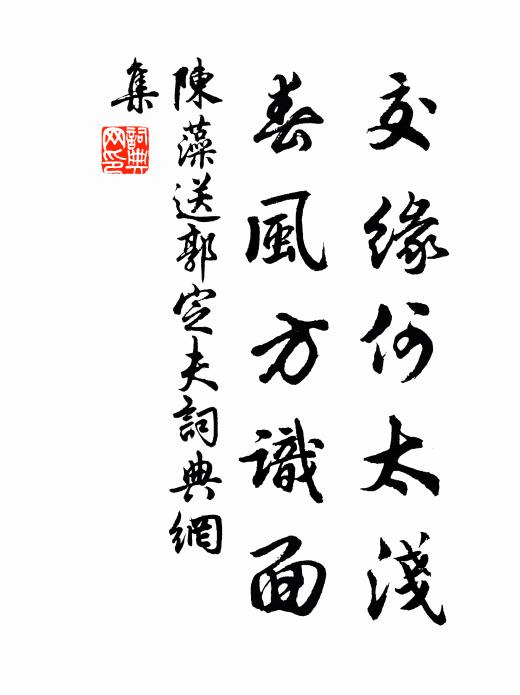 交緣何太淺
春風方識面
陳藻送郭定夫詞典網
集
詞典
网印